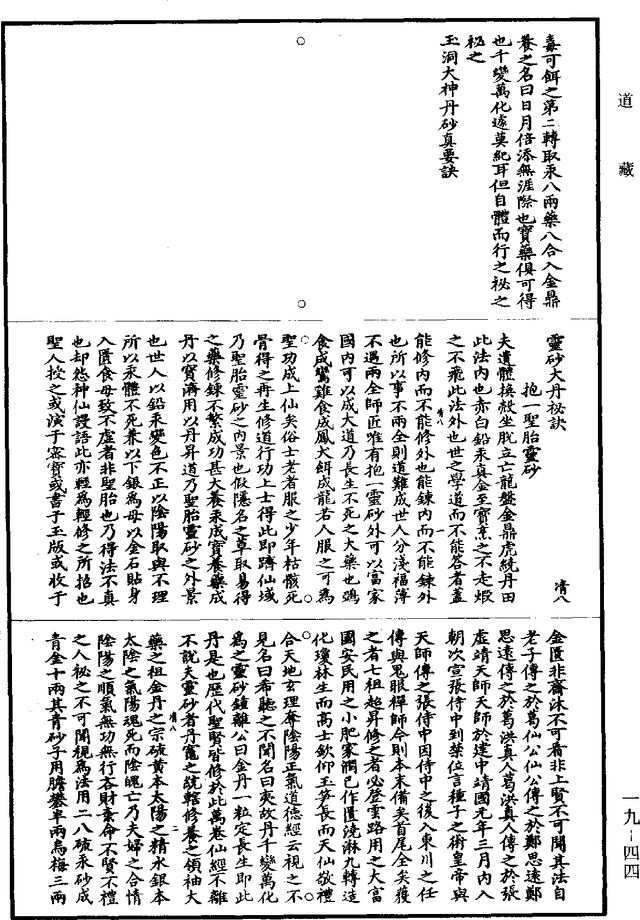 道藏
嘉可餌之第二轉取汞八兩藥八合入金鼎
養之名曰日月倍添無涯際也寶藥俱可得
也千變萬化遽莫紀耳但自體而行之祕之
祕之
玉洞大神丹砂真要訣
靈砂大丹祕訣
清八
抱一聖胎靈砂
夫遺體換殼坐脫立亡龍盤金鼎虎繞丹田
此法內也赤白鉛汞真金至寶烹之不走煆
之不飛此法外也世之學道而不能咨者蓋
能修內而不能修外也能鍊內而不能鍊外
也所以事不兩全則道難成世人分淺福薄
不遇兩全師匠唯有抱一靈砂外可以富家
國內可以成大道乃長生不死之大藥也鵶
食成鸞雞食成鳳犬餌成龍若人服之可為
聖功成上仙矣俗士老者服之少年枯骸死
骨得之再生修道行功上士得此即躋仙域
乃聖胎靈砂之內景也倣隱名之草取易得
之藥修鍊不繁成功甚大養汞成寶養藥成
丹以寶濟用以丹昇道乃聖胎靈砂之外景
也世人以鉛汞變色不正以陰陽取與不理
所以汞體不死養以下銀為母以金石貼身
入匱食母致不虛者非聖胎也乃得法不真
也却怨神仙謾語此亦輕為輕修之所招也
聖人授之或演于密寶或書于玉版或收于
清八 一
金匱非齋沐不可看非上賢不可聞其法自
老子傳之於葛仙公仙公傳之於鄭思遠鄭
思遠傳之於葛洪真人葛洪真人傳之於張
虛靖天師天師於建中靖國元年三月內入
朝次宣張侍中到榮位言種子之術皇帝與
天師傳之張侍中因侍中之後入東川之任
傳與鬼眼禪師今則本末備矣首尾全矣獲
之者七祖超昇修之者必登雲路用之大富
國安民用之小肥家潤己作匱澆淋九轉造
化瓊林生而高士欽仰玉笋長而天仙敬禮
合天地玄理奪陰陽正氣道德經云視之不
見名曰希聽之不聞名曰夷故丹千變萬化
為之靈砂鍾離公曰金丹一粒定長生即此
丹是也歷代聖賢皆修於此萬卷仙經不離
不說夫靈砂者丹竈之統轄修養之領袖大
藥之祖金丹之宗硫黃本太陽之精水銀本
太陰之氣陽魂死而陰魄亡乃夫婦之合情
陰陽之順氣無功無行吝財棄命不賢不禮
之人祕之不可開視為法用二八硫汞砂成
青金十兩其青砂子用膽礬半兩烏梅三兩
清八 二
一九－四四